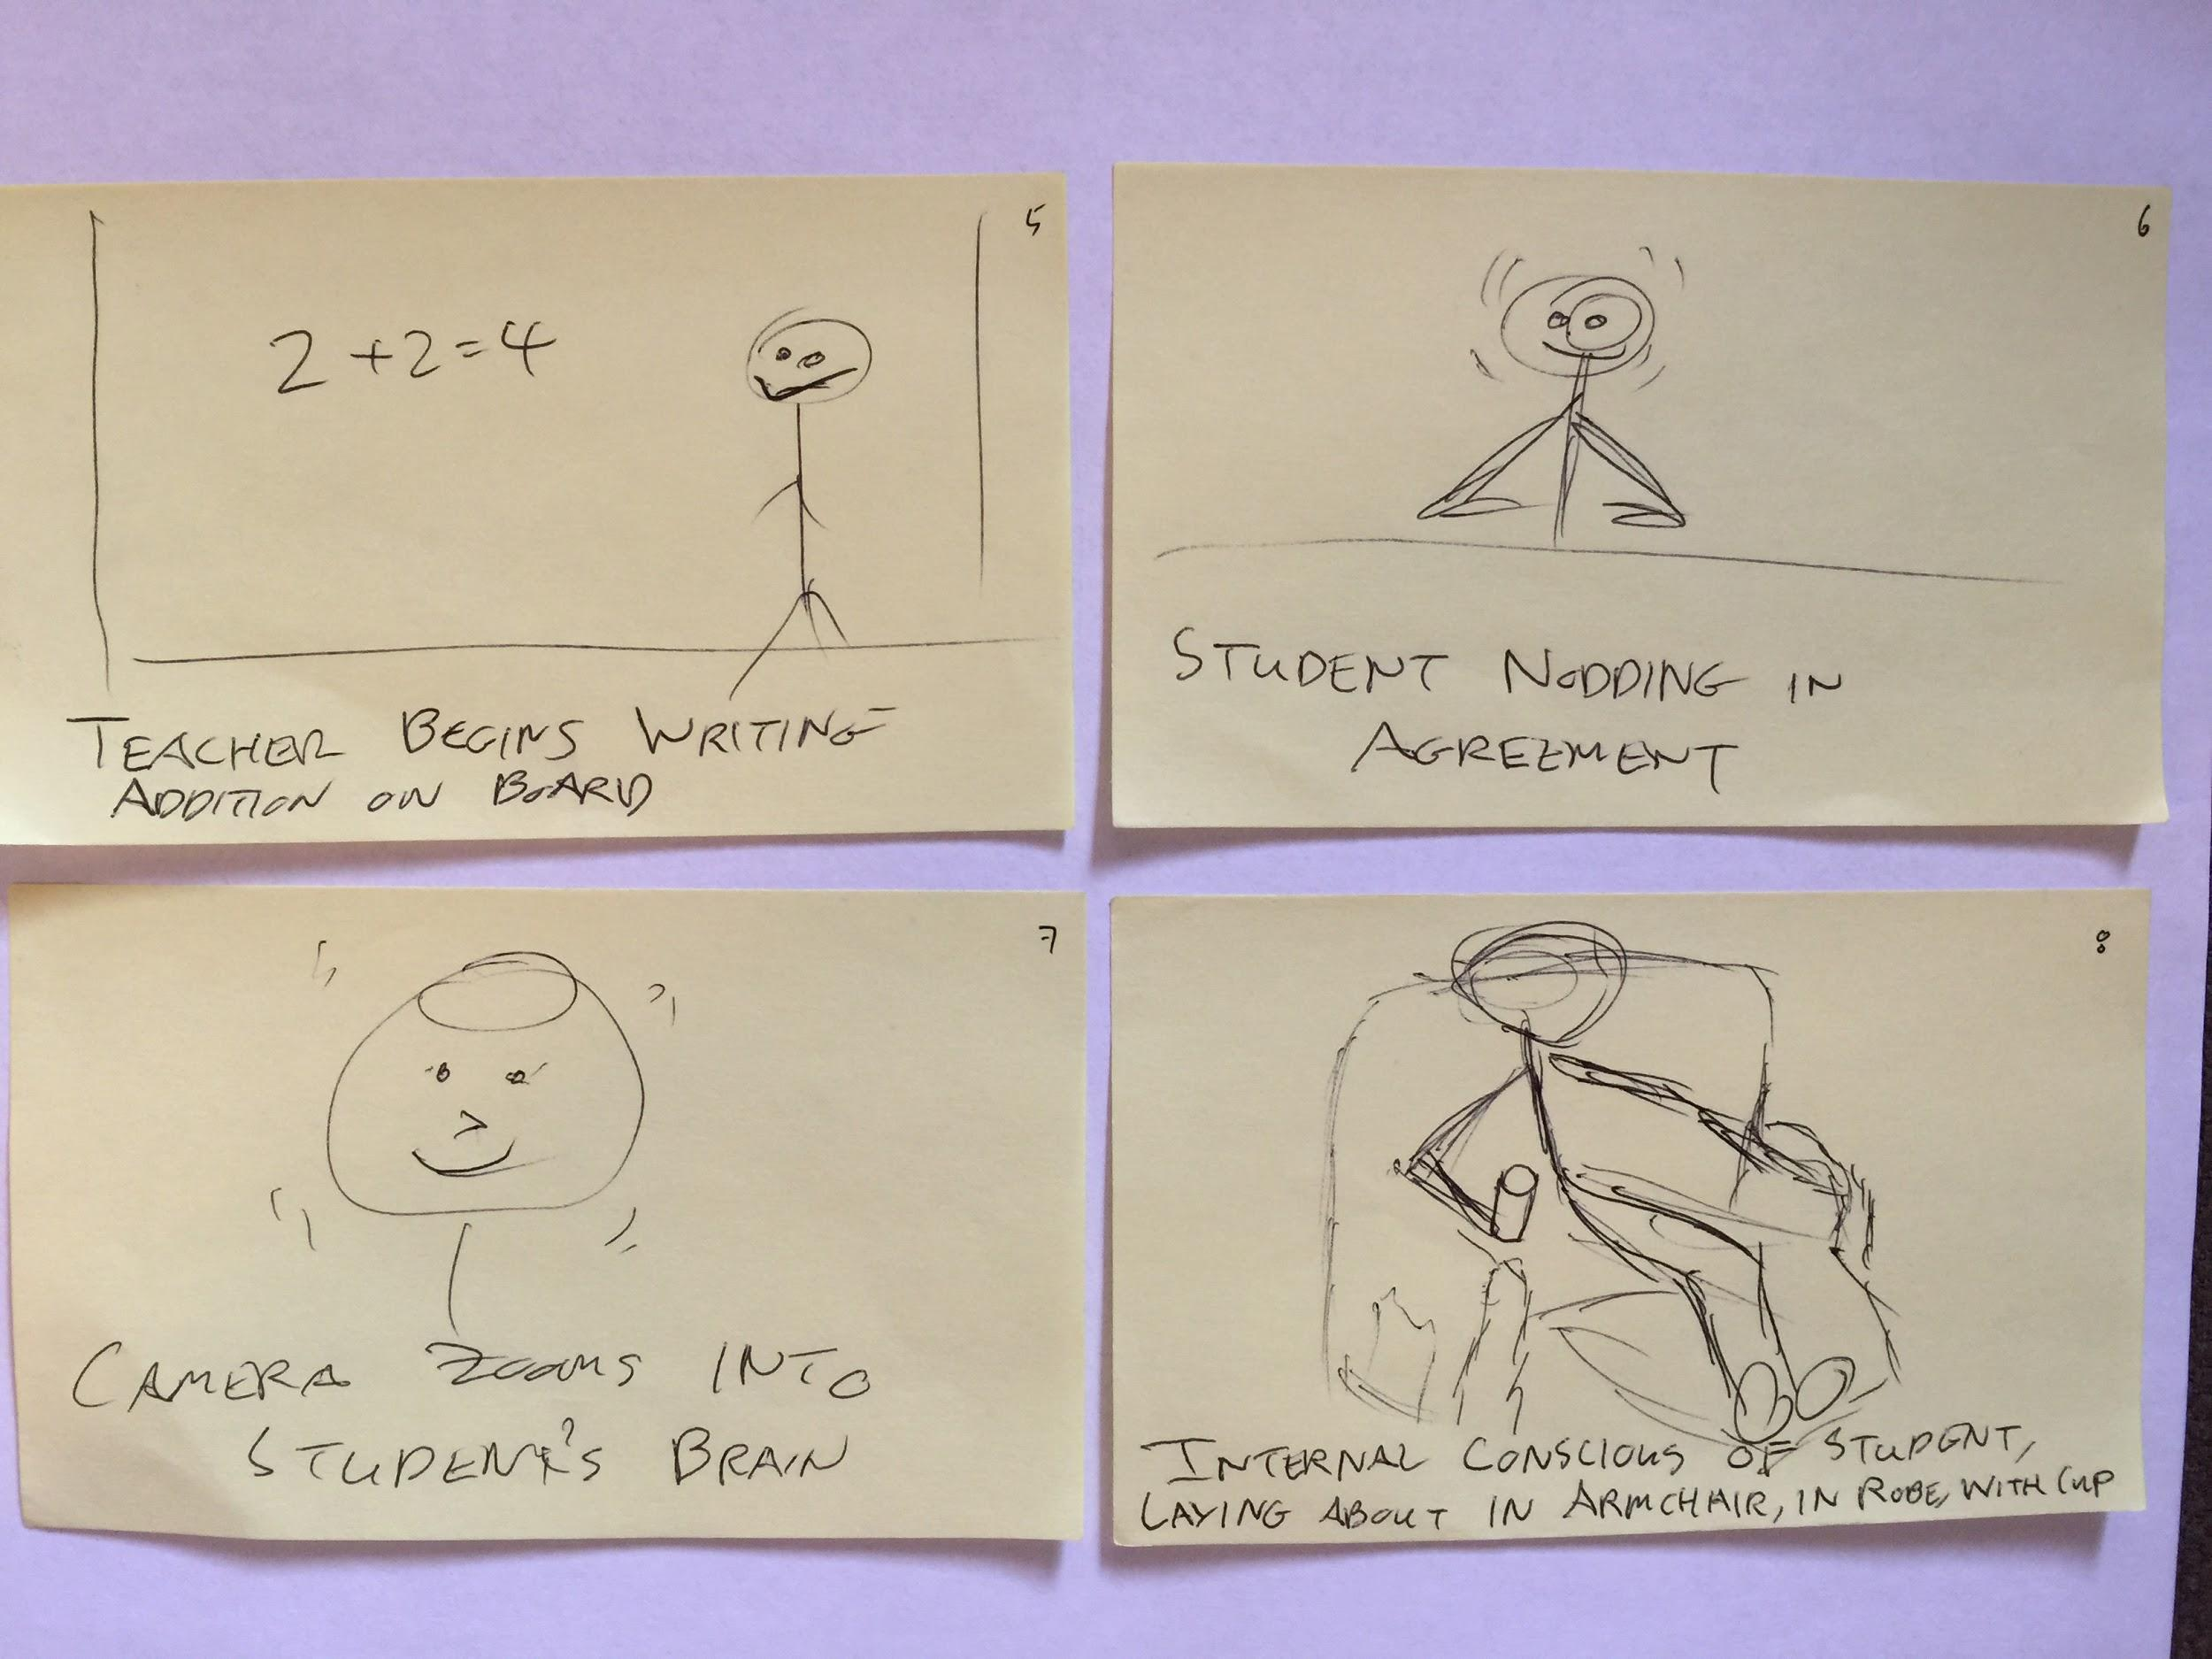 5
2+2=4
TEACHER BEGINS WRITING
ADDITION ON BOARD
6
STUDENT NODDING IN
AGREEMENT
7
CAMERA ZOOMS INTO
STUDENT'S BRAIN
8
INTERNAL CONSCIOUS OF STUDENT,
LAYING ABOUT IN ARMCHAIR, IN ROBE, WITH CUP